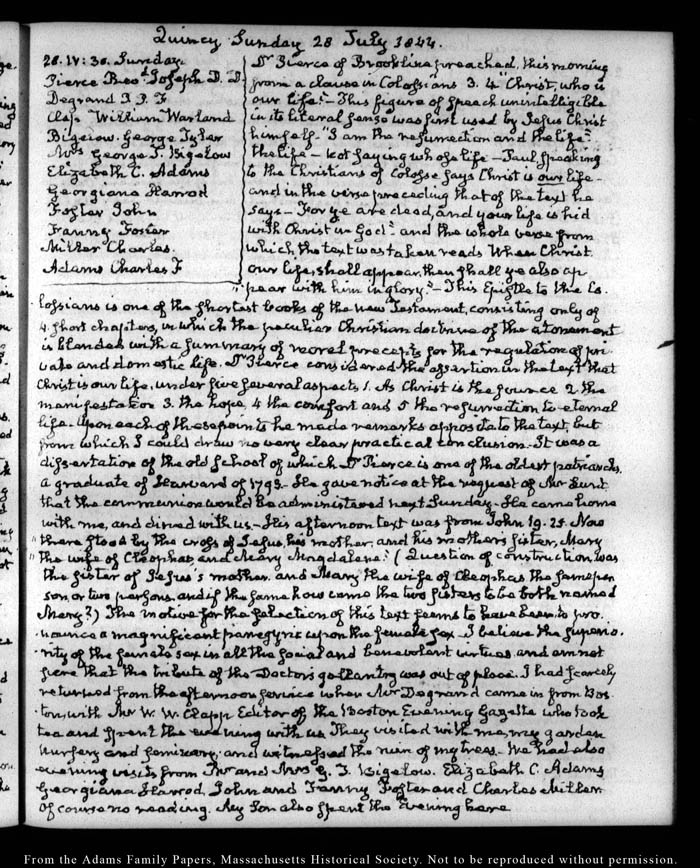 Quincy Sunday 28 July 1844.
28. IV: 30. Sunday.
Pierce Revd. Joseph D. D.
Degrand P. P. F
Clapp William Warland
Bigelow. George Tyler
Mrs George T. Bigelow
Elizabeth C. Adams
Georgiana Harrod
Foster John
Fanny Foster
Miller Charles.
Adams Charles F
Dr. Pierce of Brookline preached, this morning
from a clause in Colossians 3. 4 "Christ, who is
our life" — This figure of speach unintelligible
in its literal sense was first used by Jesus Christ
himself. "I am the resurrection and the life"
the life — not saying whose life — Paul speaking
to the Christians of Colosse says Christ is our life —
and in the verse preceding that of the text he
says — For ye are dead, and your life is hid
with Christ in God" and the whole verse from
which the text was taken reads When Christ
our life, shall appear, then shall ye also ap
"pear with him in glory." — This Epistle to the Co.
lossians is one of the shortest books of the new Testament, consisting only of
4. short chapters, in which the peculiar Christian doctrine of the atonement
is blended with a summary of moral precepts for the regulation of pri
vate and domestic life. Dr Pierce considered the assertion in the text that
Christ is our life, under five several aspects 1. As Christ is the source 2 the
manifestator 3. the hope, 4 the comfort and 5 the resurrection to eternal
life. Upon each of these points he made remarks apposite to the text, but
from which I could draw no very clear practical conclusion. It was a
dissertation of the old School of which Dr Pierce is one of the oldest patriarchs,
a graduate of Harvard of 1793. He gave notice at the request of Mr Lunt
that the communion would be administered next Sunday. He came home
with me, and dined with us — His afternoon text was from John 19. 25. Now
"there stood by the cross of Jesus, his mother, and his mother's sister, Mary
"the wife of Cleophas, and Mary Magdalene." (Question of construction, was
the sister of Jesus's mother, and Mary the wife of Cleophas the same per
son, or two persons. and if the same how came the two sisters to be both named
Mary?) The motive for the selection of this text seems to have been to pro.
nounce a magnificent panegyric upon the female sex — I believe the superio.
rity of the female sex in all the social and benevolent virtues, and am not
sure that the tribute of the Doctor's gallantry was out of place. I had scarcely
returned from the afternoon service when Mr Degrand came in from Bos
ton, with Mr W. W. Clapp Editor of the Boston Evening Gazette who took
tea and spent the evening with us. They visited with me, my garden
nursery and seminary. and witnessed the ruin of my trees. We had also
evening visits from Mr and Mrs G. T. Bigelow. Elizabeth C. Adams
Georgiana Harrod John and Fanny Foster and Charles Miller.
Of course no reading. My Son also spent the Evening here
From the Adams Family Papers, Massachusetts Historical Society. Not to be reproduced without permission.